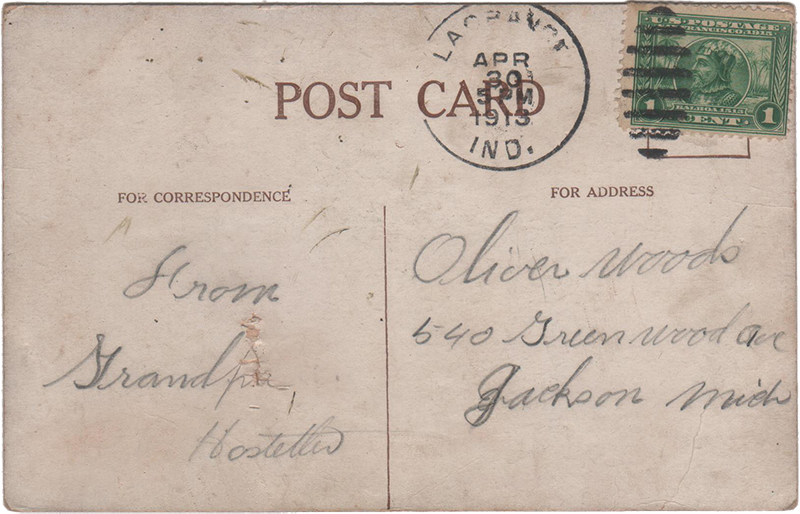 LAGRANGE
APR
30
5 PM
1913
IND.
U.S. POSTAGE
SAN FRANCISCO 1915
BALBOA 1513
1 CENT. 1
POST CARD
FOR CORRESPONDENCE
FOR ADDRESS
From
Grandpa
Hostetler
Oliver Woods
540 Greenwood ave
Jackson Mich